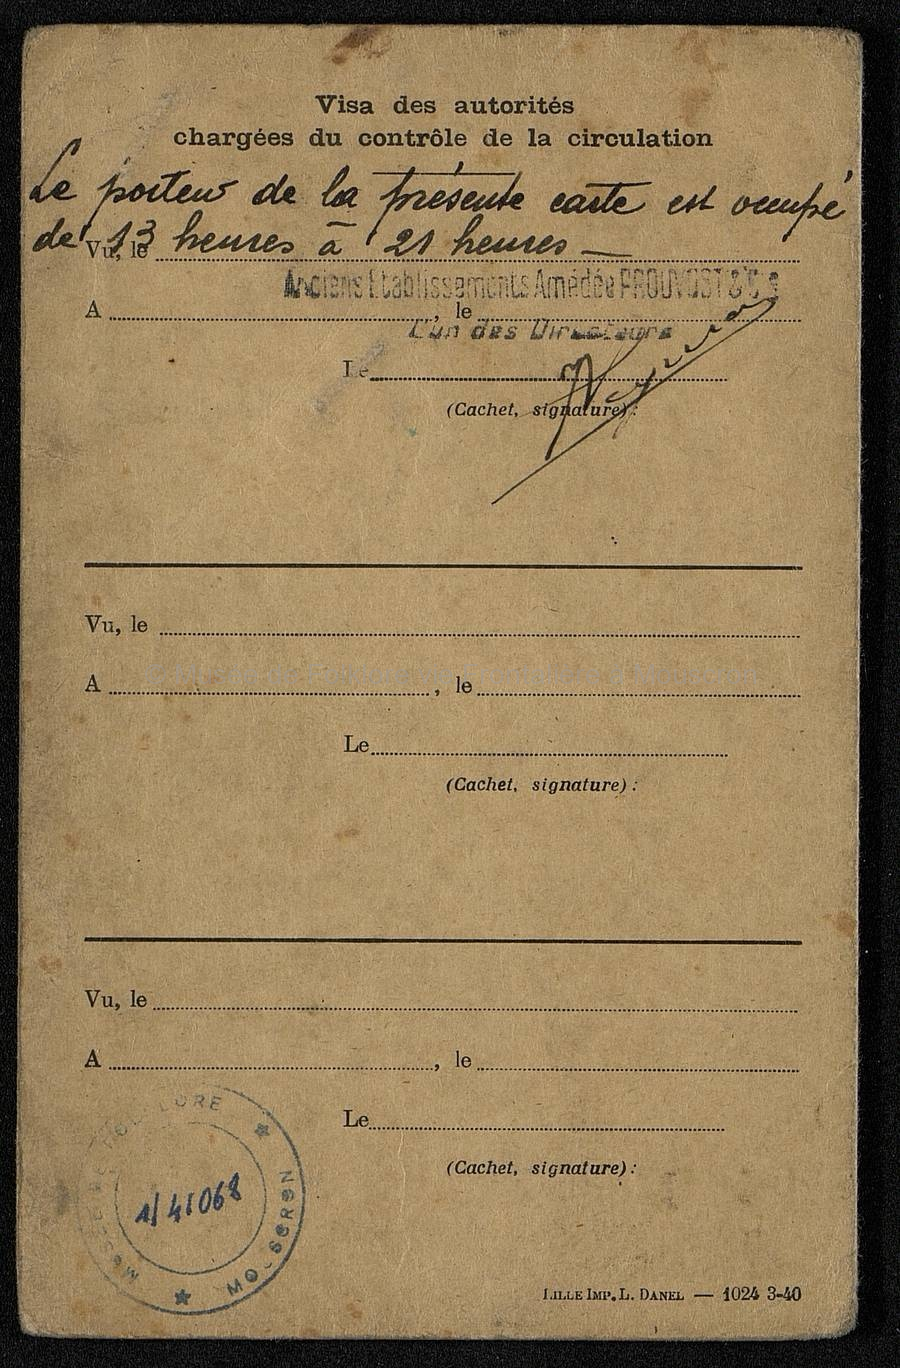 Visa des autorités
chargées du contrôle de la circulation
Le porteur de la présente carte est occupé
de 13 heures à 21 heures —
Vu, le
Anciens Etablissements Amédée PROUVOST & Cie
A , le
L'un des Directeurs
Le
(Cachet, signature) :
Vu, le
A , le
Le
(Cachet, signature) :
Vu, le
A , le
Le
(Cachet, signature) :
FOLKLORE
MOUSCRON
1/41068
LILLE IMP. L. DANEL — 1024 3-40